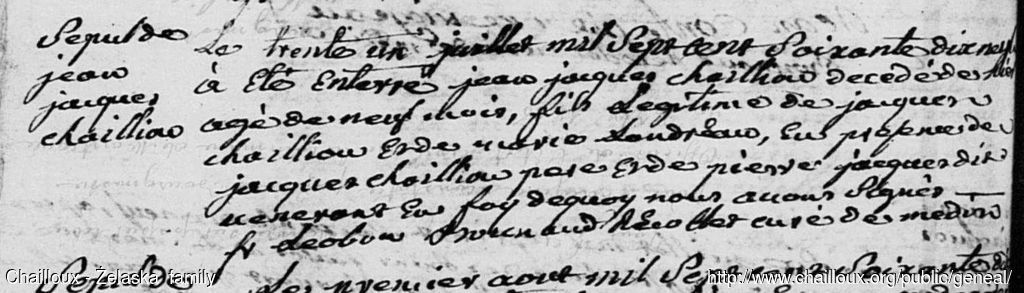 Sepul de
jean
jacques
chailliou
Le trente un juillet mil Sept cent Soixante dix neuf
à Eté Enterré jean jacques chailliou decedé de hier
agé de neuf mois, fils Legitime de jacques
chailliou Et de marie Landreau, En presence de
jacques chailliou pere Et de pierre jacques dit
venerant En foy dequoy nous avons Signés
fr Leobon Recollet curé de
Sepul de
Le premier aout mil Sept cent Soixante
Chailloux - Żelaska family
http://www.chailloux.org/public/geneal/